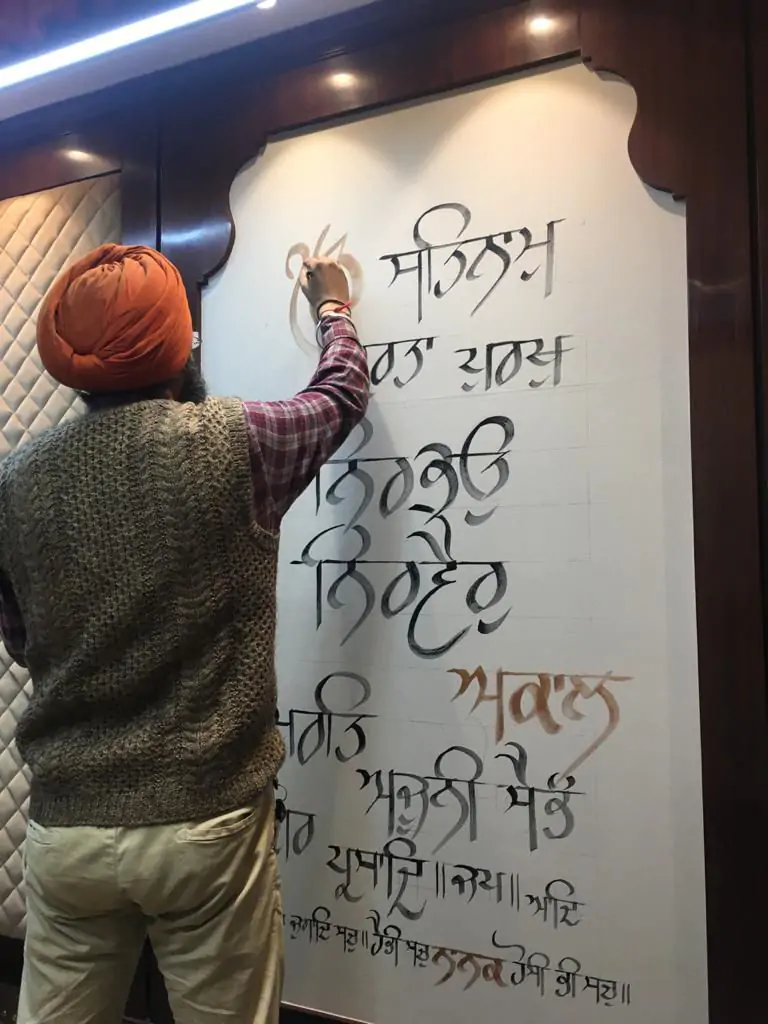 ਸਤਿਨਾਮੁ
ਪੁਰਖੁ
ਨਿਰਭਉ
ਨਿਰਵੈਰੁ
ਅਕਾਲ
ਅਜੂਨੀ ਸੈਭੰ
ਪ੍ਰਸਾਦਿ ॥ ਜਪ ॥ ਆਦਿ
ਜੁਗਾਦਿ ਸਚੁ ॥ ਹੈ ਭੀ ਸਚੁ ਨਾਨਕ ਹੋਸੀ ਭੀ ਸਚੁ ॥